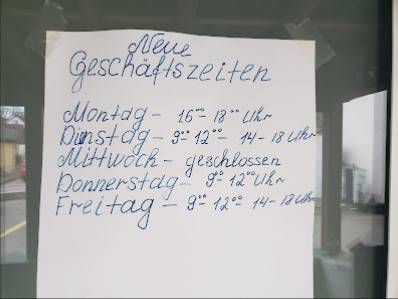 Neue
Geschäftszeiten
Montag - 16⁰⁰ - 18⁰⁰ Uhr
Dinstag - 9⁰⁰ 12⁰⁰ - 14 - 18 Uhr
Mittwoch - geschlossen
Donnerstag - 9⁰⁰ 12⁰⁰ Uhr
Freitag - 9⁰⁰ - 12⁰⁰ 14 - 18 Uhr